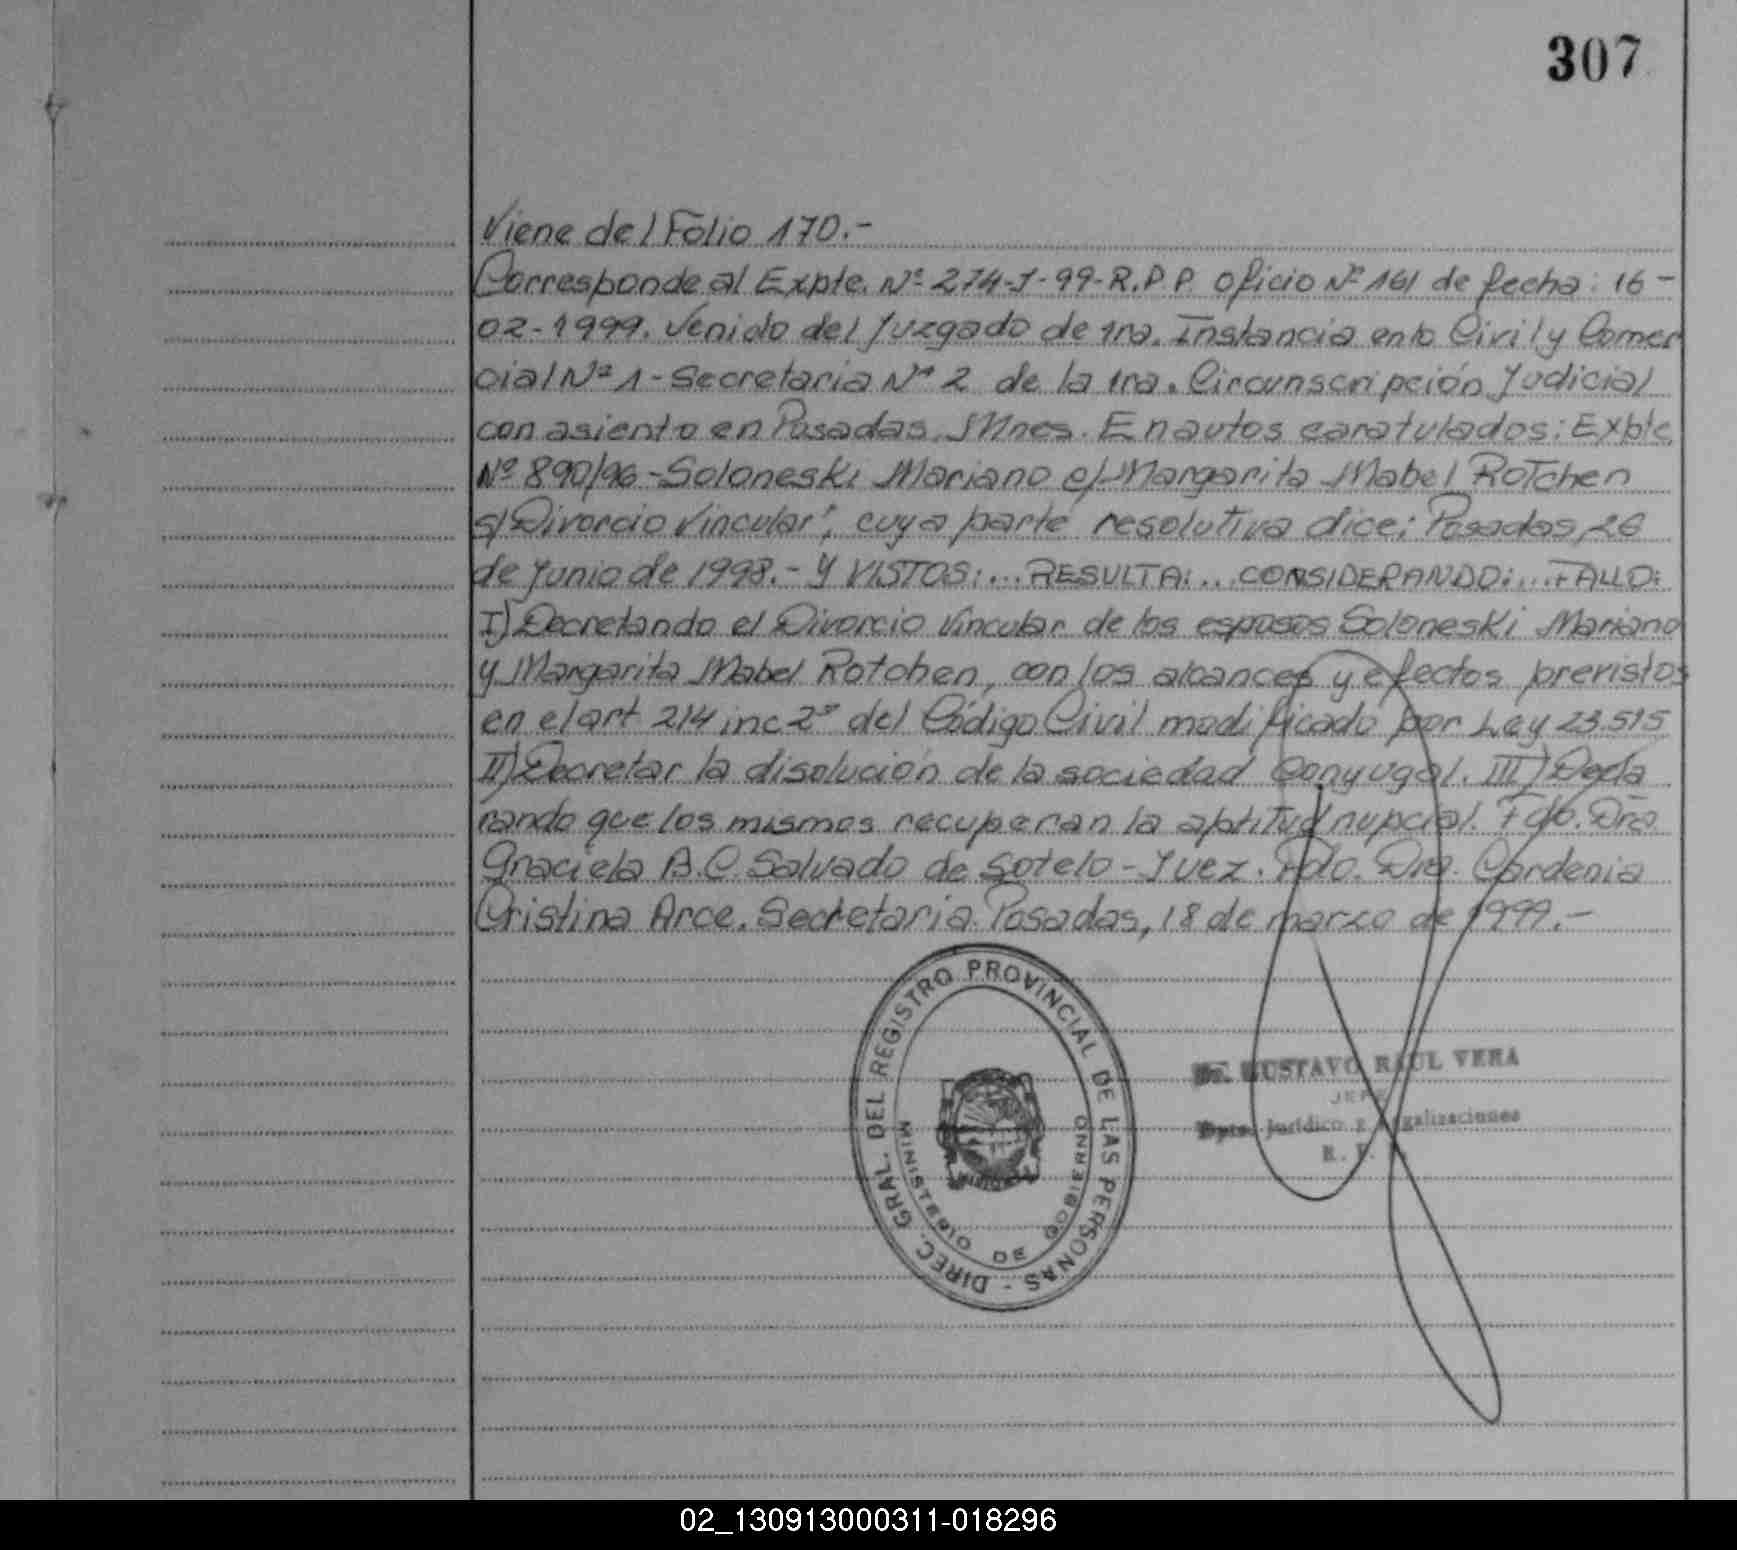 307
Viene del Folio 170.-
Corresponde al Expte. Nº 274-J-99-R.P.P. Oficio Nº 161 de fecha: 16-
02-1999. Venido del Juzgado de 1ra. Instancia en lo Civil y Comer
cial Nº 1 - Secretaria Nº 2 de la 1ra. Circunscripción Judicial
con asiento en Posadas, Mnes. En autos caratulados: Expte.
Nº 890/96 - Soloneski Mariano c/ Margarita Mabel Rotchen
s/ Divorcio Vincular", cuya parte resolutiva dice: Posadas, 26
de Junio de 1998.- Y VISTOS:... RESULTA:... CONSIDERANDO:... FALLO:
I) Decretando el Divorcio Vincular de los esposos Soloneski Mariano
y Margarita Mabel Rotchen, con los alcances y efectos previstos
en el art 214 inc 2º del Código Civil modificado por Ley 23.515
II) Decretar la disolución de la sociedad Conyugal. III) Decla
rando que los mismos recuperan la aptitud nupcial. Fdo. Dra
Graciela B.C. Salvado de Sotelo - Juez. Fdo. Dra. Cardenia
Cristina Arce. Secretaria. Posadas, 18 de marzo de 1999.-
DIREC. GRAL. DEL REGISTRO PROVINCIAL DE LAS PERSONAS -
MINISTERIO DE GOBIERNO
Dr. GUSTAVO RAUL VERA
JEFE
Dpto. Jurídico y Legalizaciones
R. P.
02_130913000311-018296